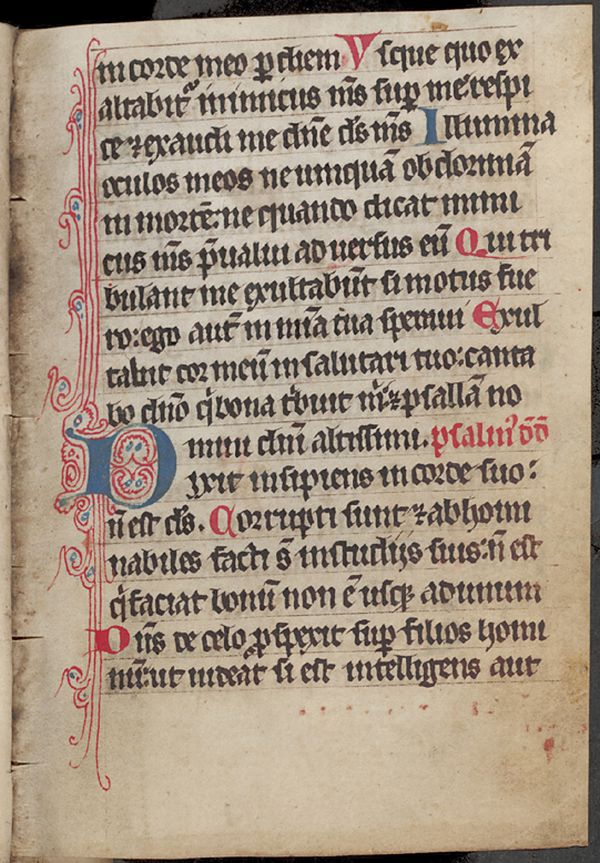 in corde meo ꝑ diem Vsque quo ex
altabit᷑ inimicus m̄s suꝑ me: respi
ce ⁊ exaudi me dn̄e ds̄ m̄s Illumina
oculos meos ne umquā obdormiā
in mortē: ne quando dicat inimi
cus m̄s p̄ualui aduersus eū Qui tri
bulant me exultabūt si motus fue
ro: ego aut̄ in mīa tua speraui Exul
tabit cor meū in salutari tuo: canta
bo dn̄o q̇ bona t'buit m̄ ⁊ psallā no
mini dn̄i altissimi. psalm' dd̄
Dixit insipiens in corde suo:
n̄ est ds̄. Corrupti sunt ⁊ abhomi
nabiles facti s̄ in studijs suis: n̄ est
q̇ faciat bonū non ē usqꝫ ad unum
Dn̄s de celo ꝓspexit suꝑ filios homi
nū: ut uideat si est intelligens aut